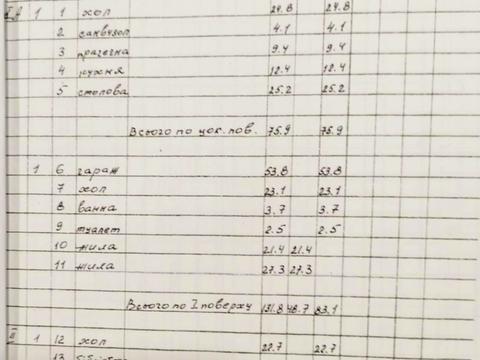 I A 1 1 хол 24.8 24.8
2 санвузол 4.1 4.1
3 прачечна 9.4 9.4
4 кухня 12.4 12.4
5 столова 25.2 25.2
Всього по цок. пов. 75.9 75.9
1 6 гараж 53.8 53.8
7 хол 23.1 23.1
8 ванна 3.7 3.7
9 туалет 2.5 2.5
10 жила 21.4 21.4
11 жила 27.3 27.3
Всього по I поверху 131.8 48.7 83.1
II 1 12 хол 22.7 22.7
13